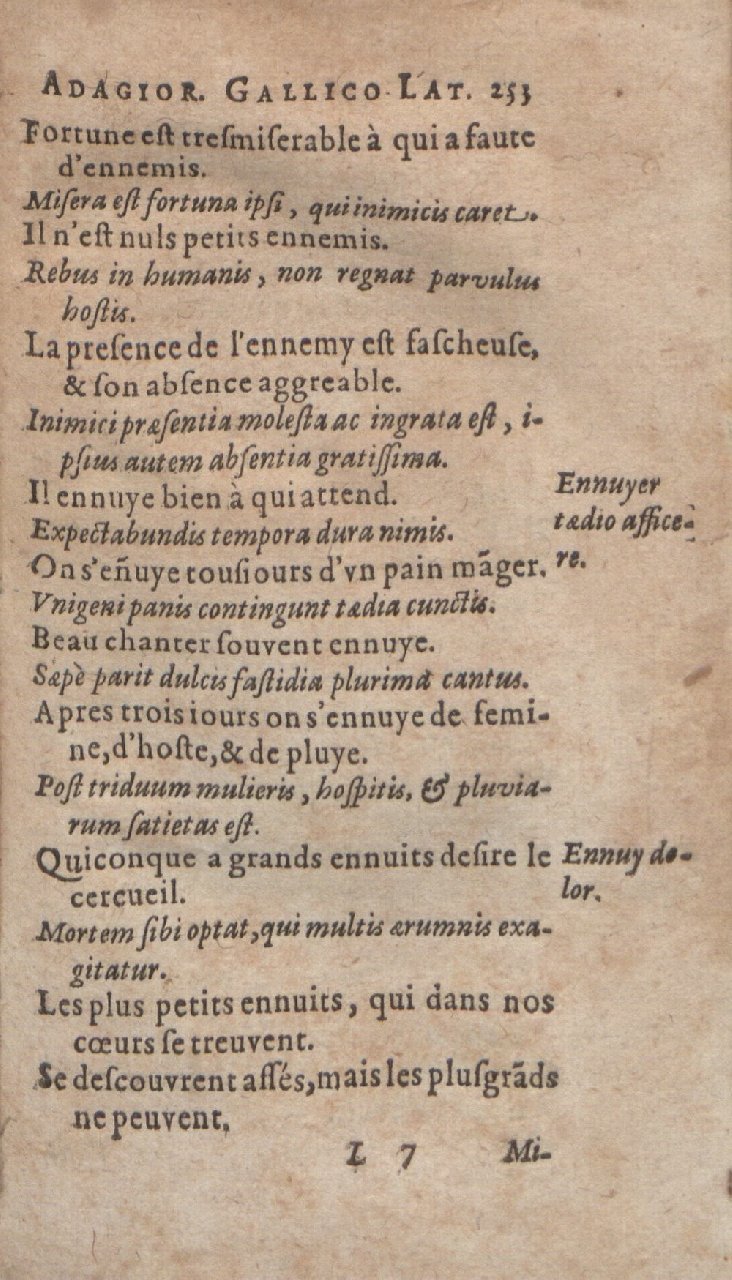 ADAGIOR. GALLICO-LAT. 253
Fortune est tresmiserable à qui a faute
d'ennemis.
Misera est fortuna ipsi, qui inimicis caret.
Il n'est nuls petits ennemis.
Rebus in humanis, non regnat parvulus
hostis.
La presence de l'ennemy est fascheuse,
& son absence aggreable.
Inimici præsentia molesta ac ingrata est, i-
psius autem absentia gratissima.
Il ennuye bien à qui attend.
Ennuyer
Expectabundis tempora dura nimis.
tædio affice-
On s'eñuye tousiours d'vn pain mãger.
re.
Vnigeni panis contingunt tædia cunctis.
Beau chanter souvent ennuye.
Sæpè parit dulcis fastidia plurima cantus.
Apres trois iours on s'ennuye de femi-
ne, d'hoste, & de pluye.
Post triduum mulieris, hospitis, & pluvia-
rum satietas est.
Quiconque a grands ennuits desire le
Ennuy do-
cercueil.
lor.
Mortem sibi optat, qui multis ærumnis exa-
gitatur.
Les plus petits ennuits, qui dans nos
cœurs se treuvent.
Se descouvrent assés, mais les plus grãds
ne peuvent.
L 7 Mi-